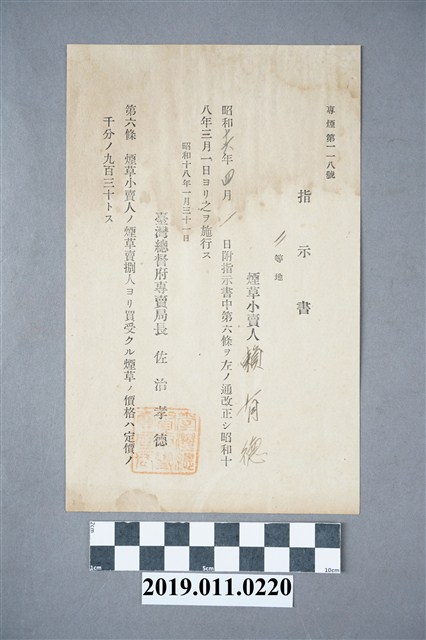 專煙第一一八號
指示書
〃等地
煙草小賣人 賴有德
昭和 年四月一日附指示書中第六條ヲ左ノ通改正シ昭和十
八年三月一日ヨリ之ヲ施行ス
昭和十八年一月三十一日
臺灣總督府專賣局長 佐治孝德
第六條 煙草小賣人ノ煙草賣捌人ヨリ買受クル煙草ノ價格ハ定價ノ
千分ノ九百三十トス
1cm 5cm 10cm
2019.011.0220